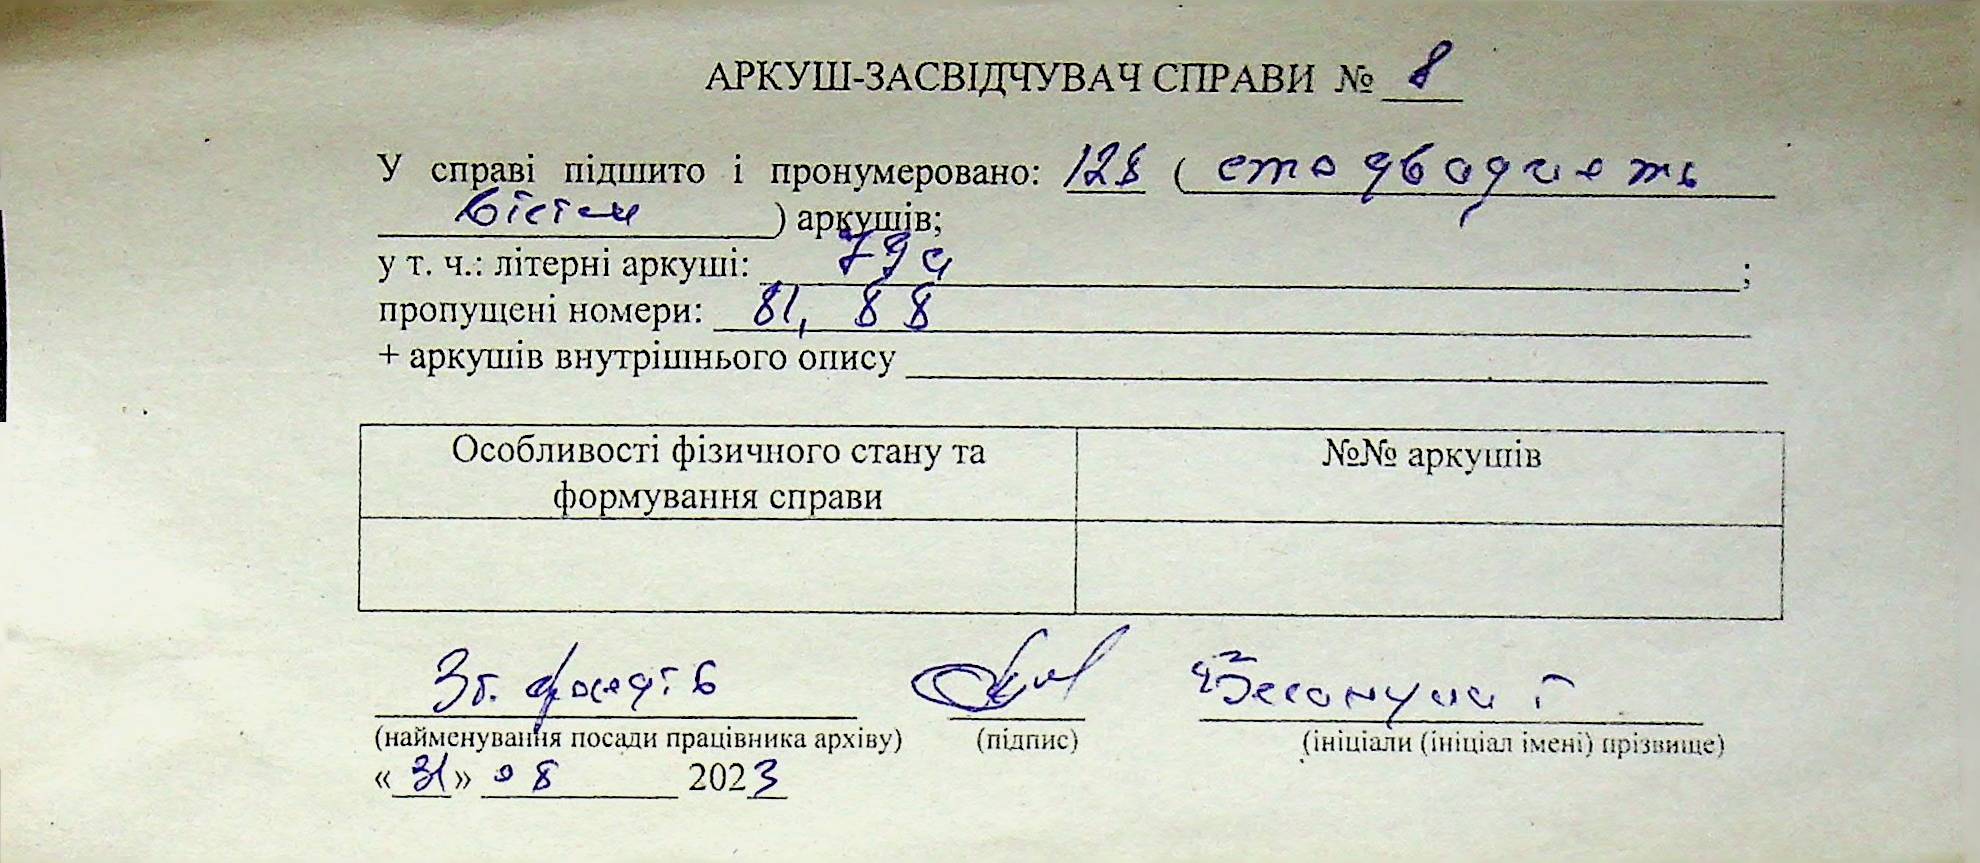 АРКУШ-ЗАСВІДЧУВАЧ СПРАВИ № 8
У справі підшито і пронумеровано: 128 ( сто двадцять
вісім ) аркушів;
у т. ч.: літерні аркуші: 79а ;
пропущені номери: 81, 88
+ аркушів внутрішнього опису
Особливості фізичного стану та
формування справи
№№ аркушів
Зб. фондів
(найменування посади працівника архіву) (підпис) (ініціали (ініціал імені) прізвище)
«31» 08 2023